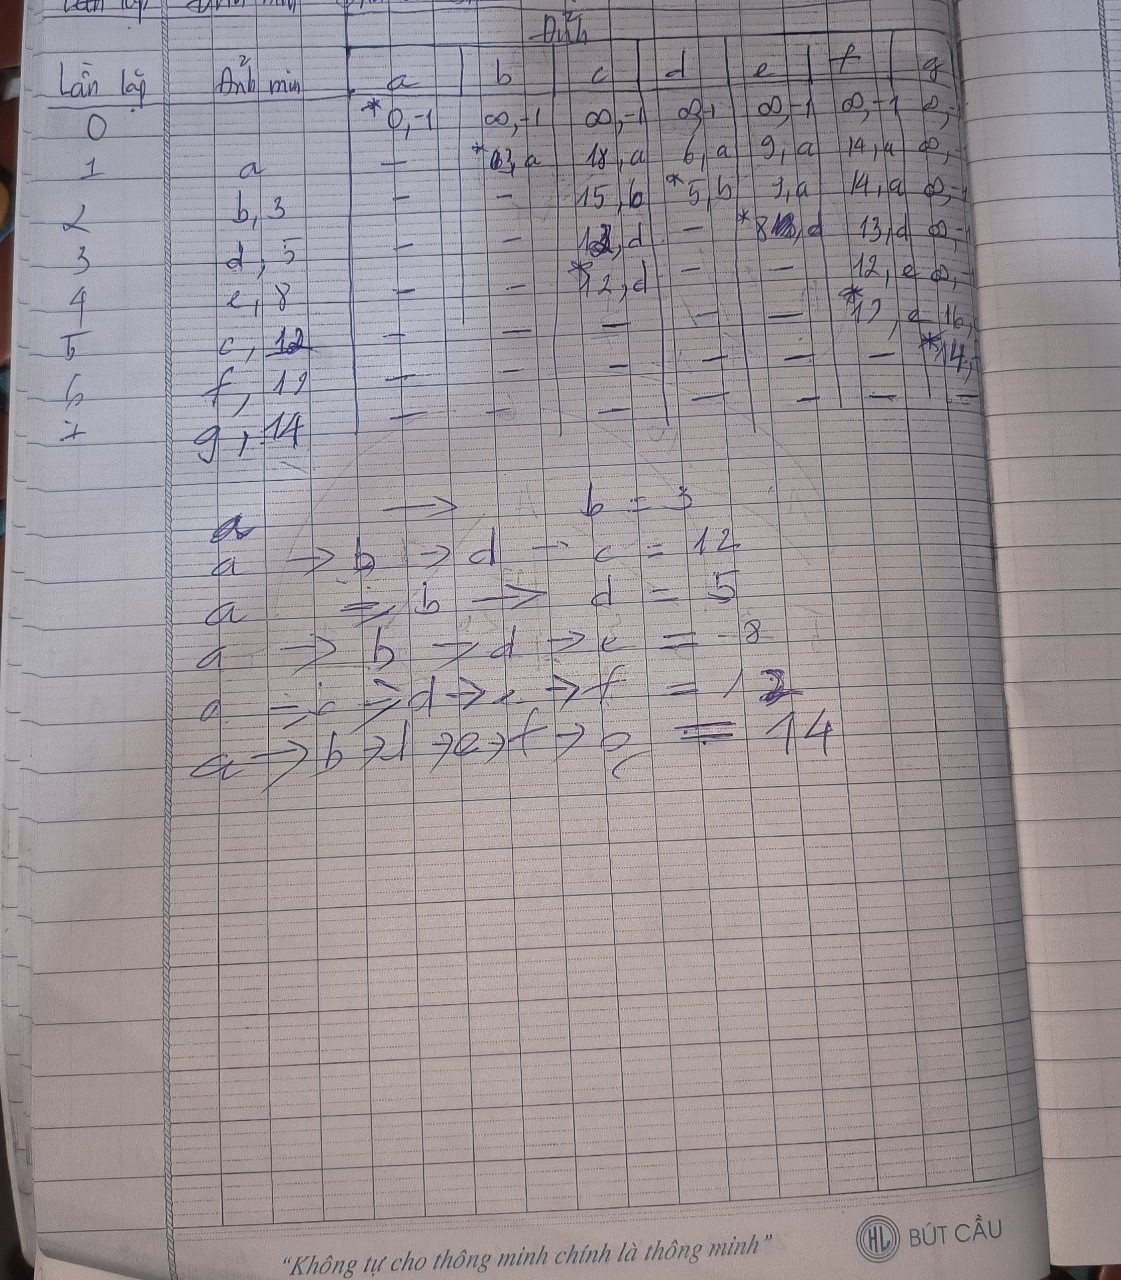 Đỉnh
Lần lặp Đỉnh min a b c d e f g
0 *0,-1 ∞,-1 ∞,-1 ∞,-1 ∞,-1 ∞,-1 ∞,-
1 a – *3,a 18,a 6,a 9,a 14,a ∞,-
2 b,3 – – 15,b *5,b 9,a 14,a ∞,-1
3 d,5 – – 12,d – *8,d 13,d ∞,-1
4 e,8 – – *12,d – – 12,e ∞,-
5 c,12 – – – – – *12,e 16,
6 f,12 – – – – – – *14,f
7 g,14 – – – – – – –
a → b = 3
a → b → d → c = 12
a → b → d = 5
a → b → d → e = 8
a → b → d → e → f = 12
a → b → d → e → f → g = 14
“Không tự cho thông minh chính là thông minh”
HL BÚT CẦU